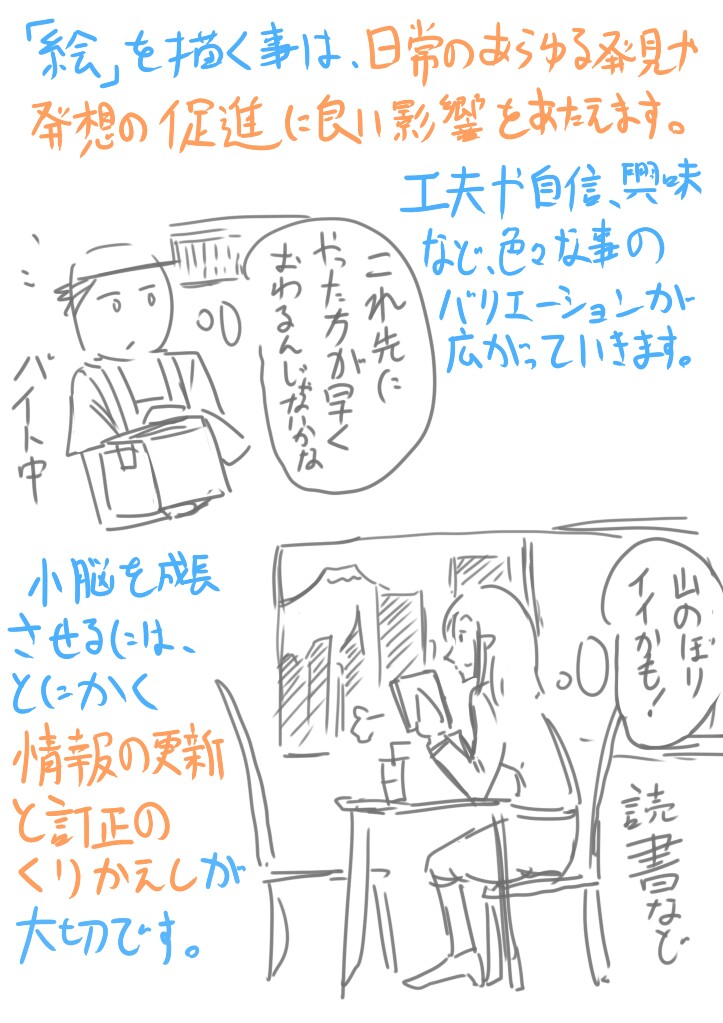 「絵」を描く事は、日常のあらゆる発見や
発想の促進に良い影響をあたえます。
工夫や自信、興味
など、色々な事の
バリエーションが
広がっていきます。
これ先に
やった方が早く
おわるんじゃないかな
バイト中
小脳を成長
させるには、
とにかく
情報の更新
と訂正の
くりかえしが
大切です。
山のぼり
イイかも!
読書など